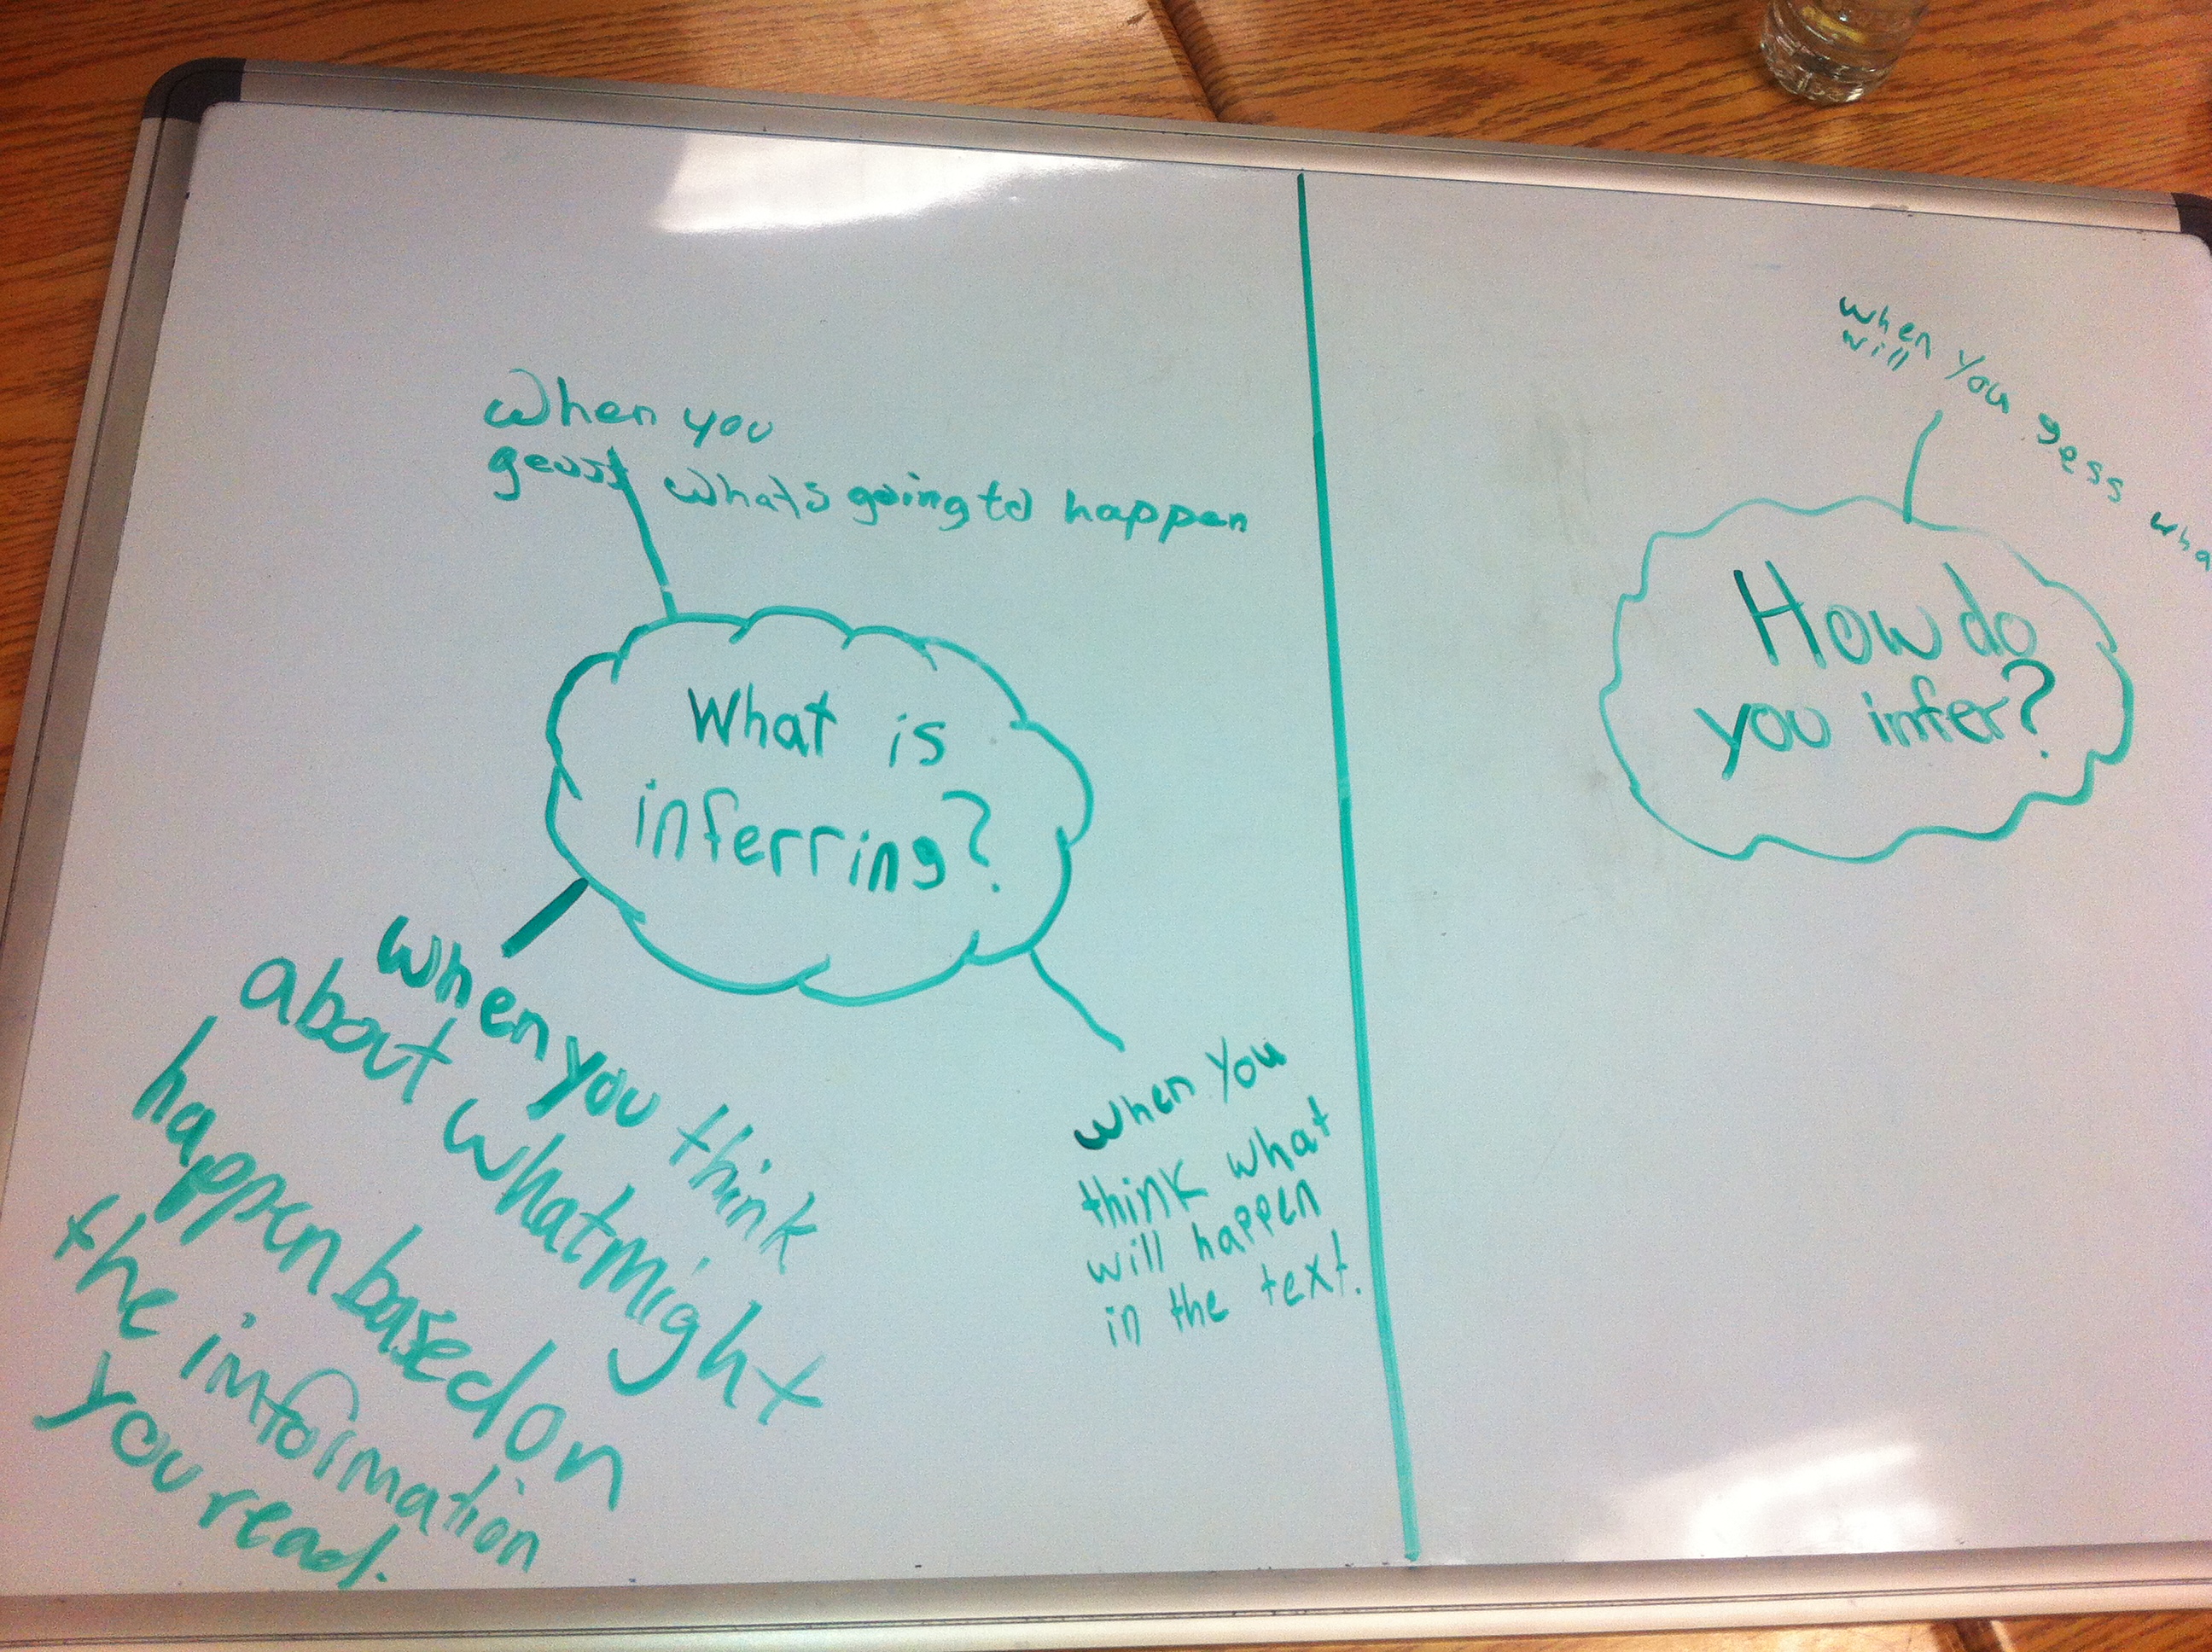 When you
geusst whats going to happen
What is
inferring?
when you think
about what might
happen based on
the information
you read.
when you
think what
will happen
in the text.
when you gess wha
will
How do
you infer?